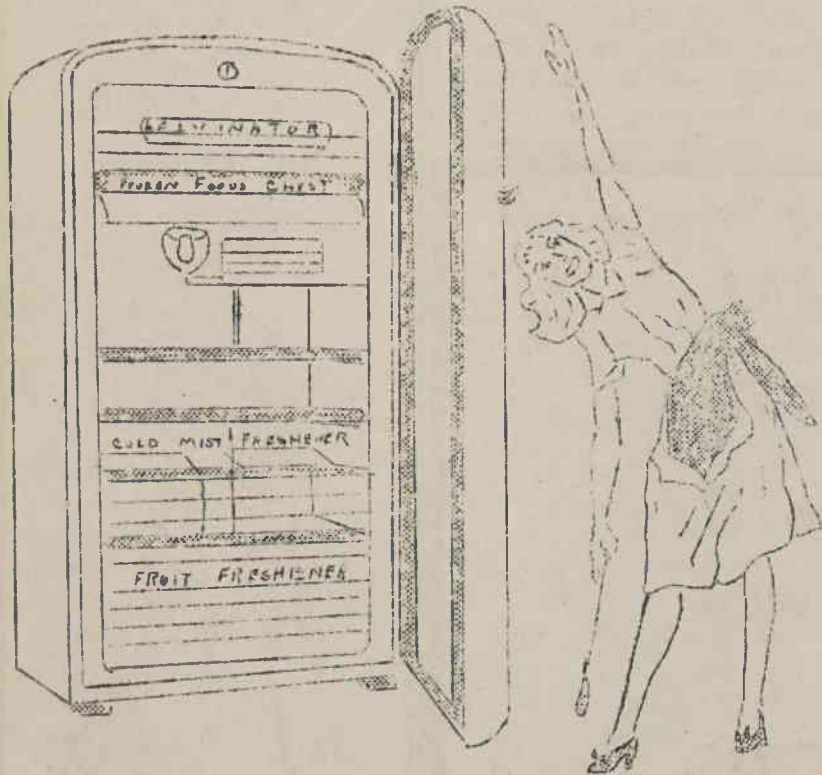 KELVINATOR
FROZEN FOODS CHEST
COLD MIST FRESHENER
FRUIT FRESHENER